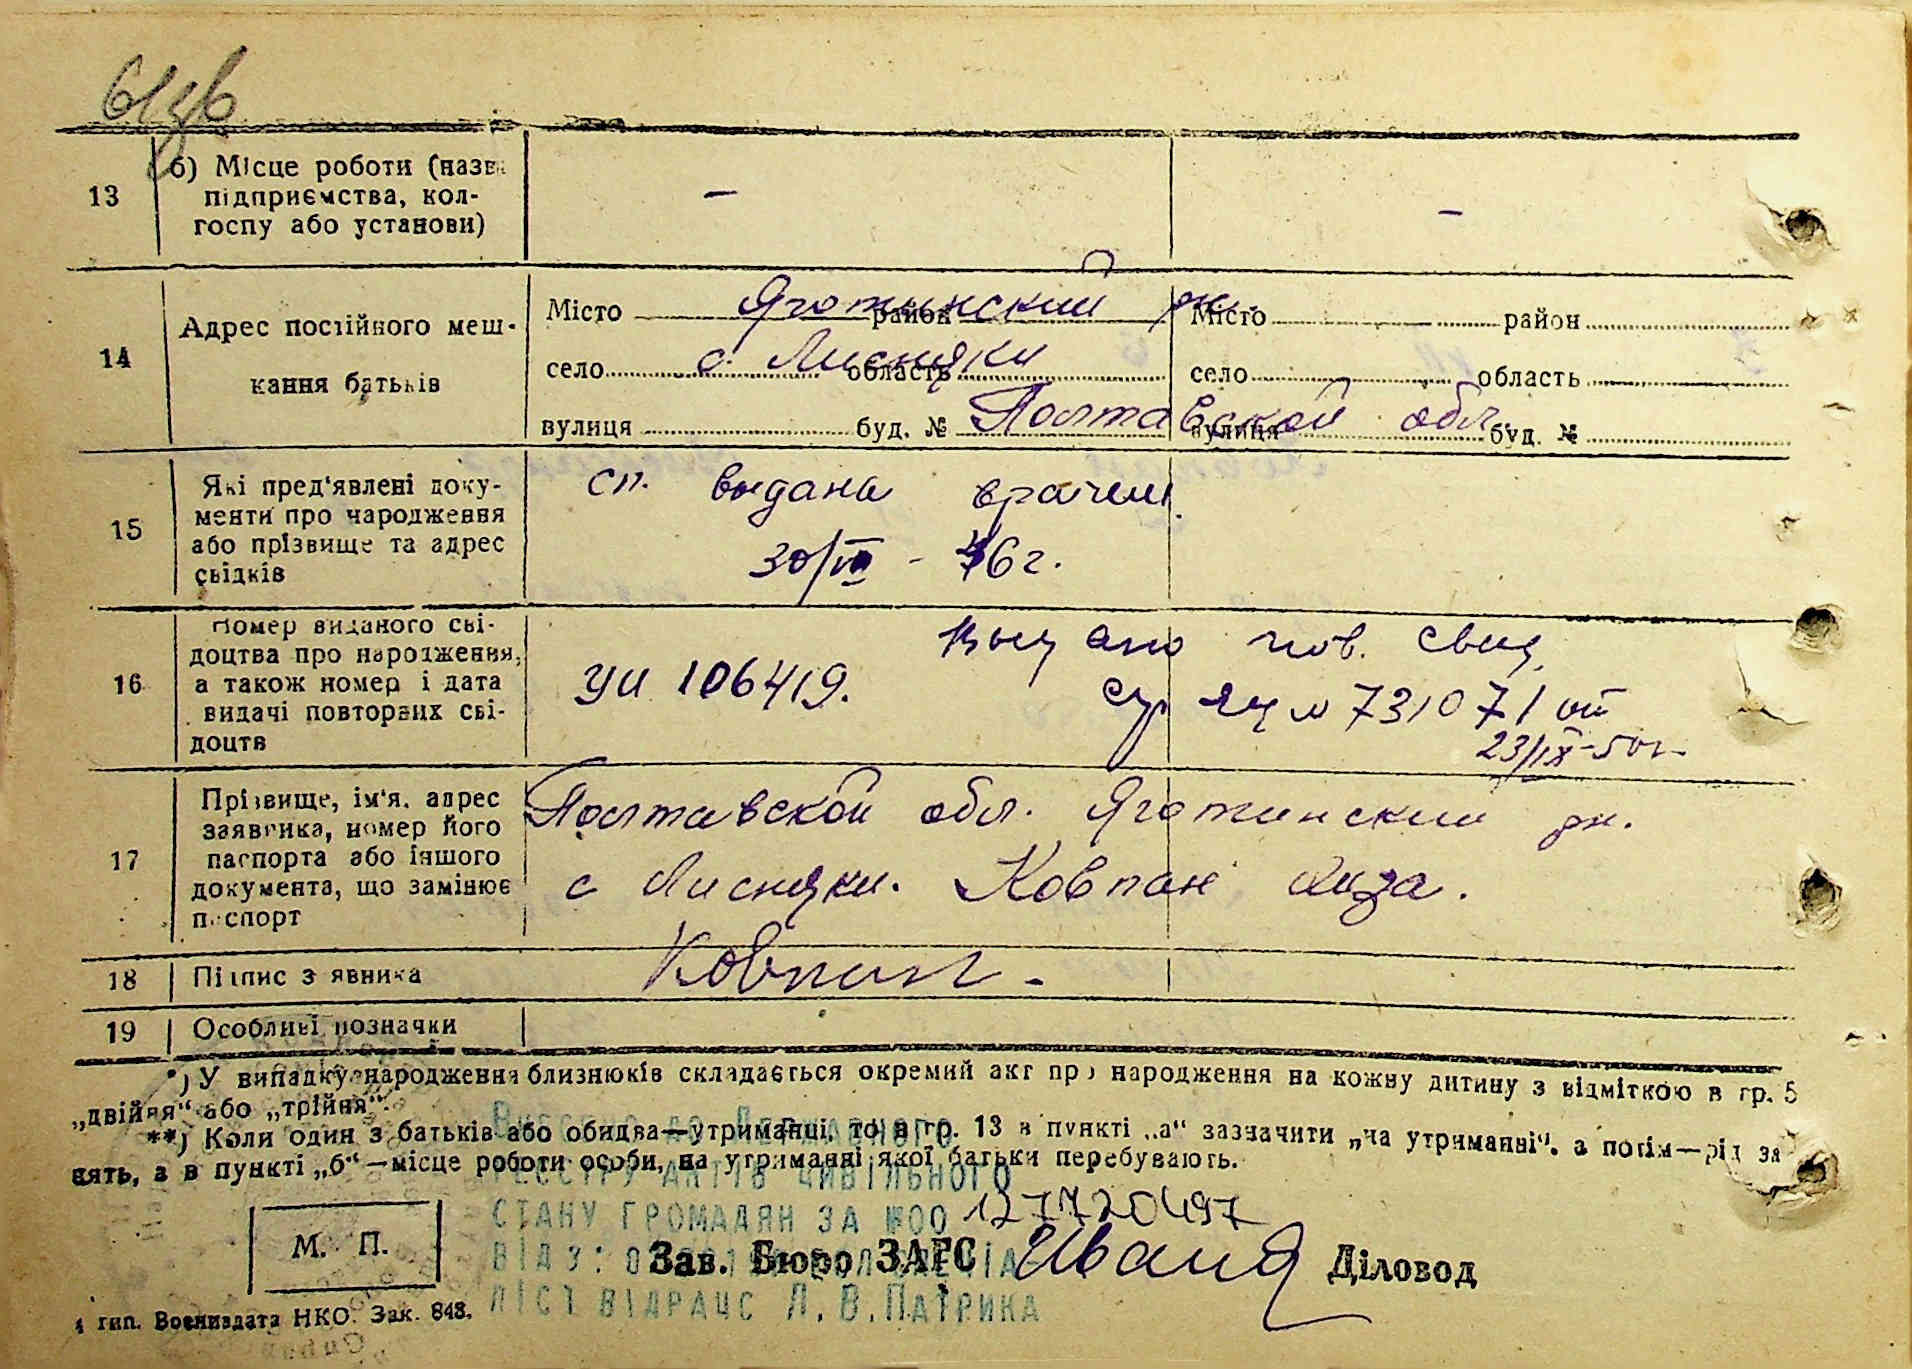 13 б) Місце роботи (назва
підприємства, кол-
госпу або установи) – –
14 Адрес постійного меш-
кання батьків
Місто Яготинский район рн. Місто район
село с Лисняки область село область
вулиця буд. № Полтавской обл. вулиця буд. №
15 Які пред'явлені доку-
менти про народження
або прізвище та адрес
свідків
сп. выдана врачем.
30/VII - 46 г.
16 Номер виданого сві-
доцтва про народження,
а також номер і дата
видачі повторних сві-
доцтв
УИ 106419.
Выдано пов. свид.
ЯЦ № 731071 от
23/IX-50 г.
17 Прізвище, ім'я, адрес
заявника, номер його
паспорта або іншого
документа, що замінює
паспорт
Полтавской обл. Яготинский рн.
с Лисняки. Ковпан Лиза.
18 Підпис заявника Ковпан
19 Особливі позначки
*) У випадку народження близнюків складається окремий акт про народження на кожну дитину з відміткою в гр. 5
„двійня“ або „трійня“.
**) Коли один з батьків або обидва—утриманці, то в гр. 13 в пункті „а“ зазначити „на утриманні“, а потім—рід за
нять, а в пункті „б“—місце роботи особи, на утриманні якої батьки перебувають.
РЕЄСТРУ АКТІВ ЦИВІЛЬНОГО
СТАНУ ГРОМАДЯН ЗА №00 127720497
М. П. Зав. Бюро ЗАГС Діловод
ЛІСТ ВІДРАЦС Л.В.ПАТРИКА
4 тип. Воениздата НКО. Зак. 848.